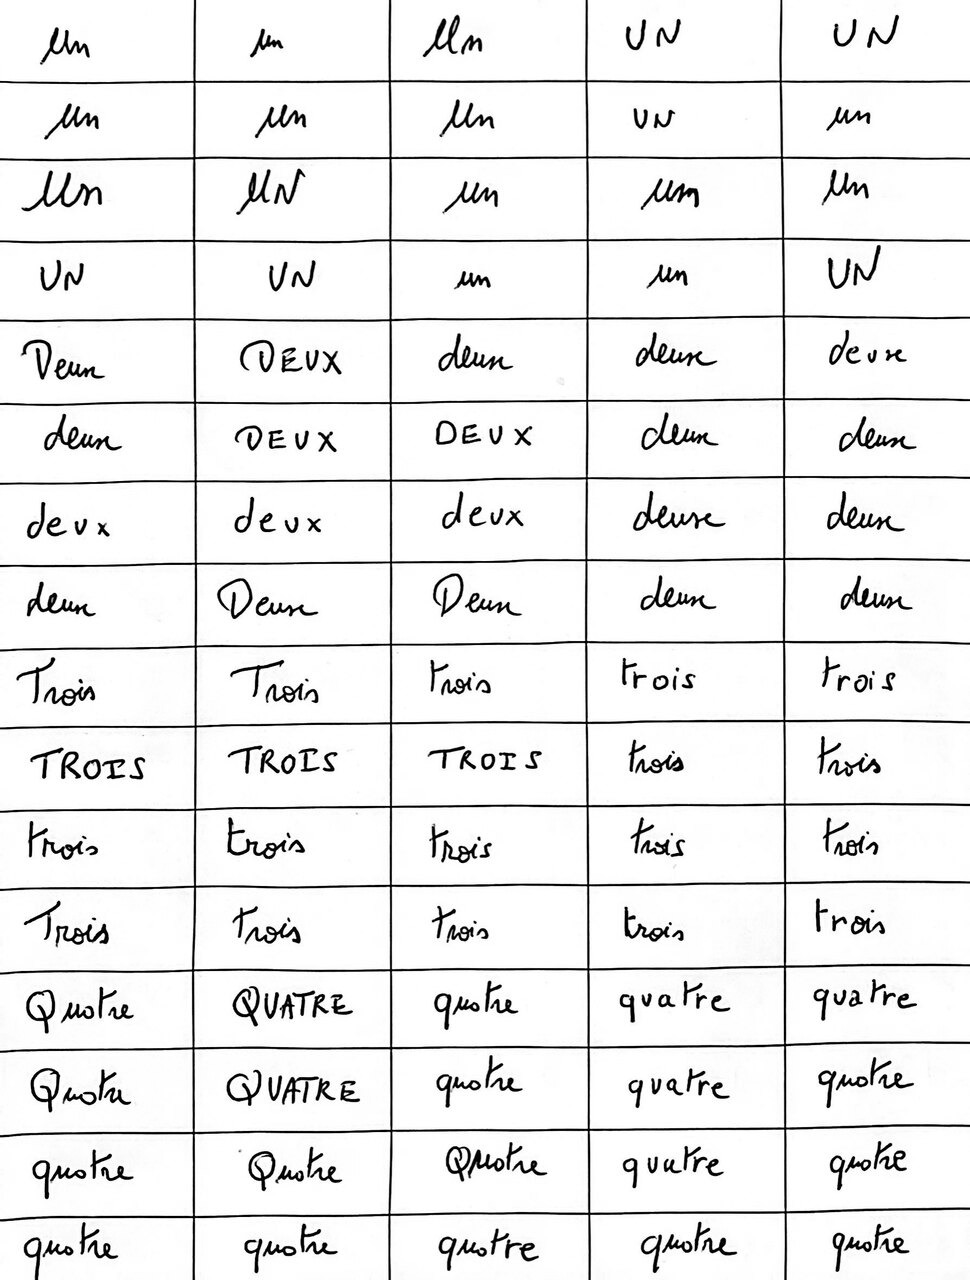 Un un Un UN UN
Un Un Un UN un
Un UN un um Un
UN UN un un UN
Deux DEUX deux deux deux
deux DEUX DEUX deux deux
deux deux deux deux deux
deux Deux Deux deux deux
Trois Trois trois trois trois
TROIS TROIS TROIS trois trois
trois trois trois trois trois
Trois trois trois trois trois
Quatre QUATRE quatre quatre quatre
Quatre QUATRE quatre quatre quatre
quatre Quatre Quatre quatre quatre
quatre quatre quatre quatre quatre